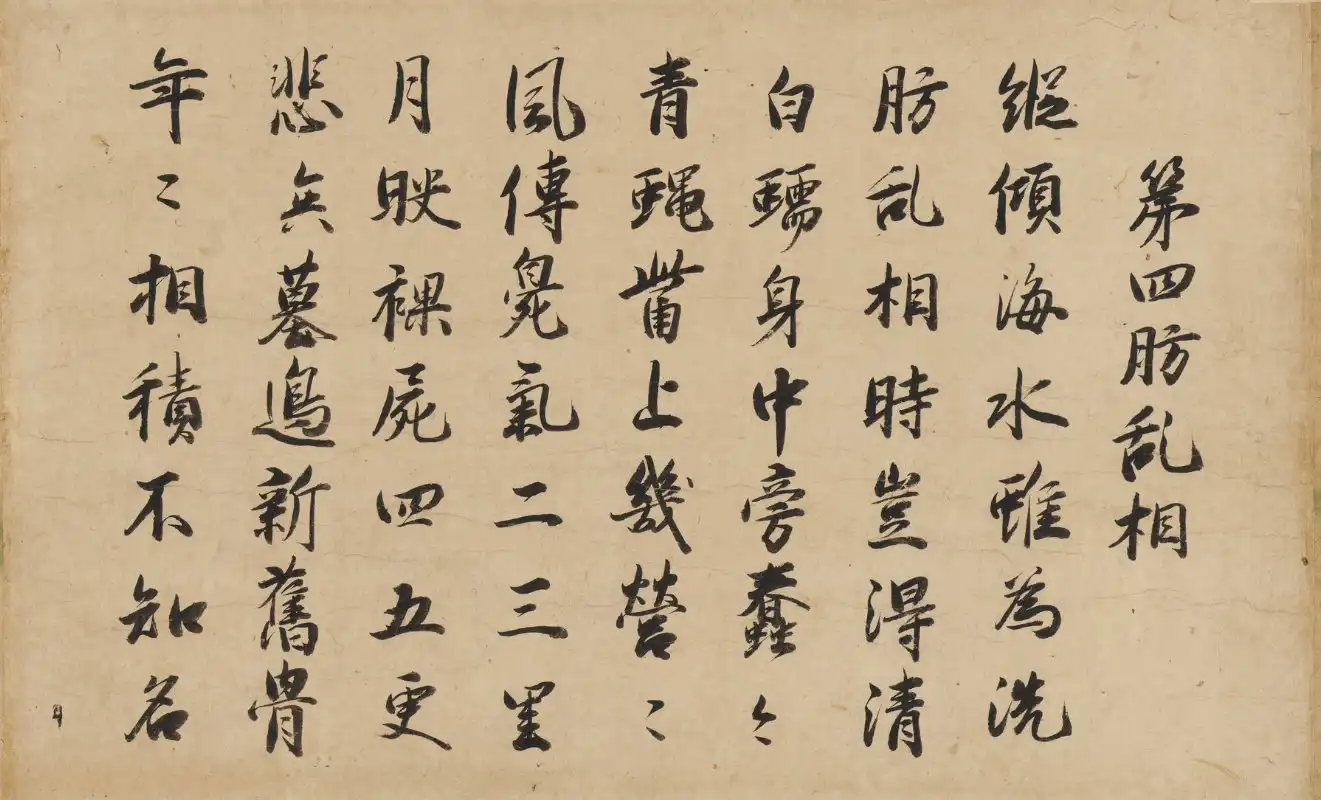 第四肪乱相
縦傾海水雖為洗
肪乱相時豈得清
白蠕身中旁蠢々
青蝿胔上幾營〻
風傳臰氣二三里
月映裸屍四五更
悲矣墓邊新舊骨
年〻相積不知名